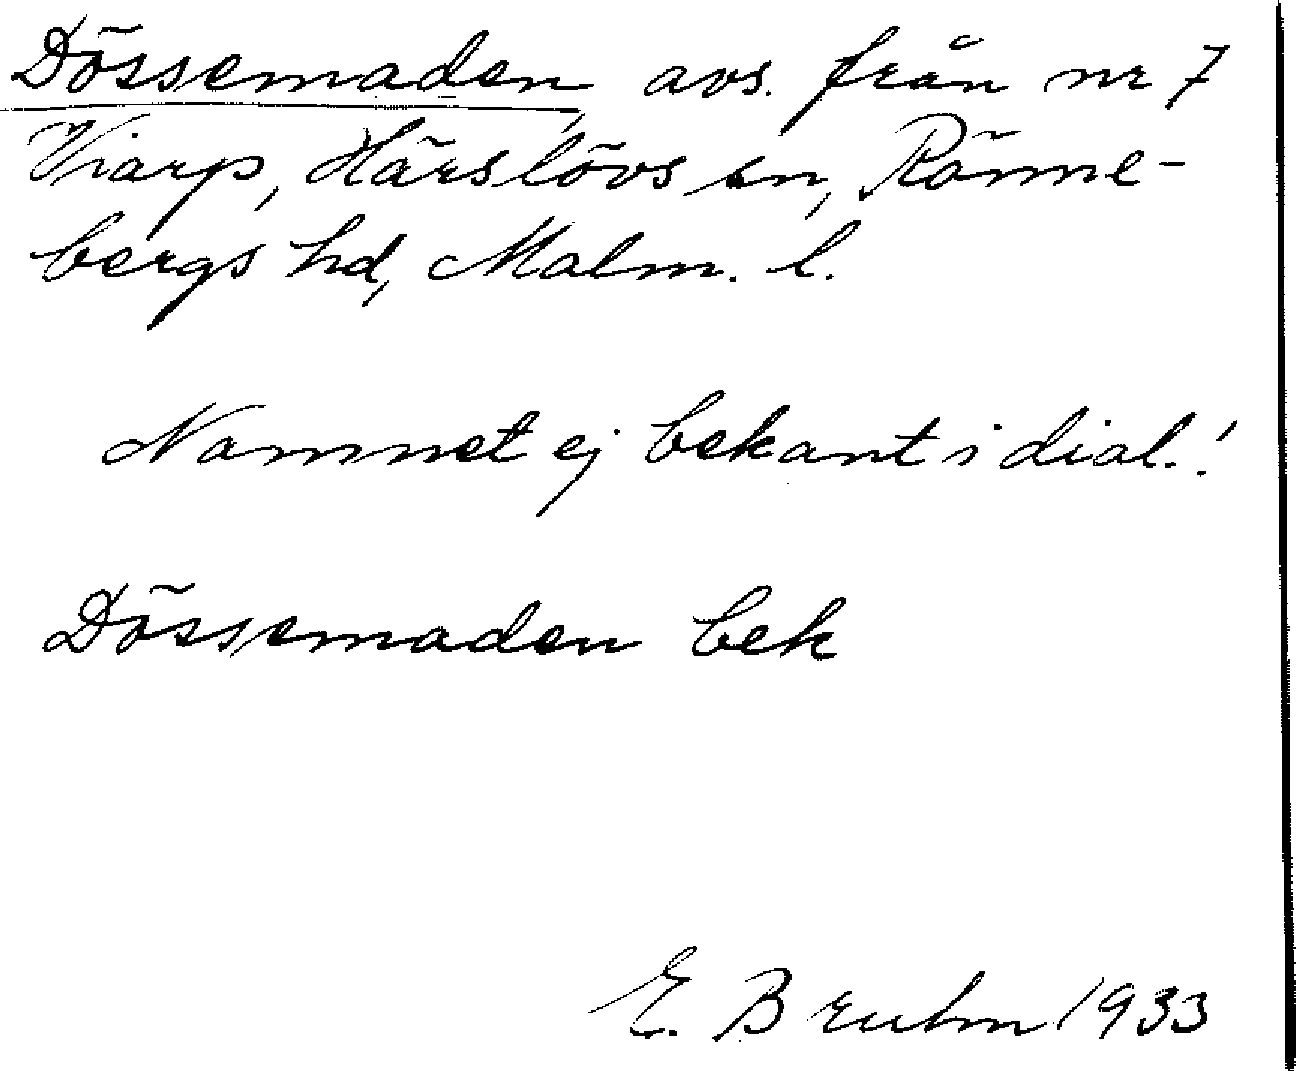 Dössemaden, avs. från nr 7
Viarp, Härslövs sn, Rönne-
bergs hd, Malm. l.
Namnet ej bekant i dial.!
Dössemaden bek
E. Bruhn 1933